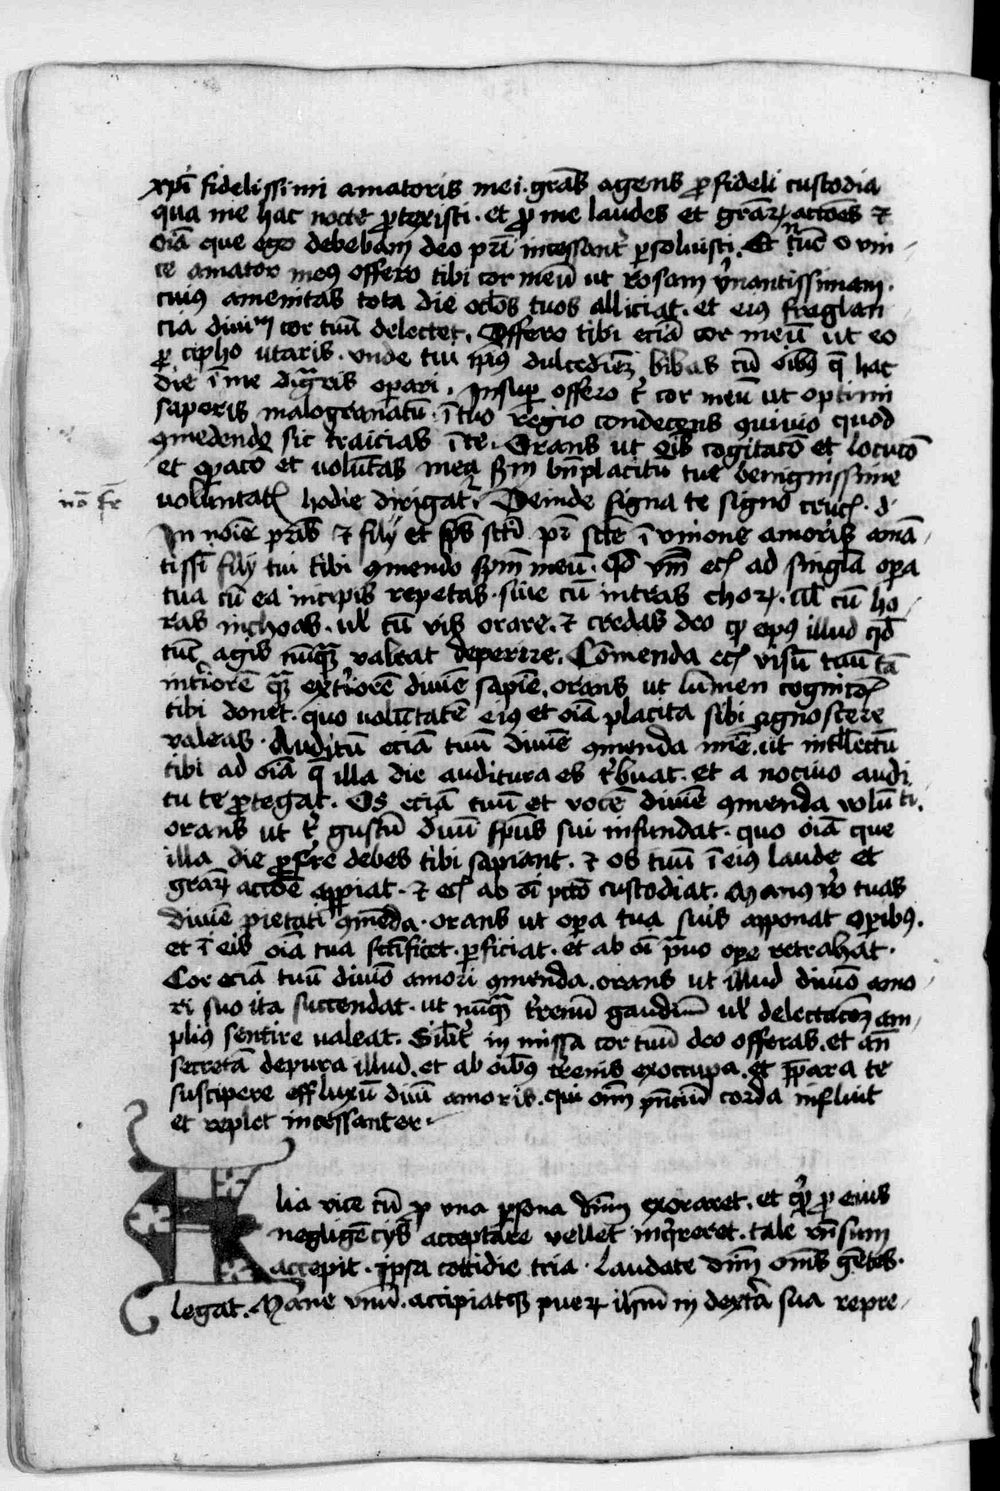 xpi fidelissimi amatoris mei. gras agens ꝓ fideli custodia
qua me hac nocte ꝓtexisti. et ꝓ me laudes et graꝝ actoes et
oia que ego debebam deo pri incessantr psoluisti. Et nunc o vni-
ce amator meus offero tibi cor meu ut rosam vnantissimam.
cuius amenitas tota die oclos tuos alliciat. et eius fraglan
cia diuinu cor tuu delectet. Offero tibi ecia cor meu ut eo
ꝑ cipho utaris. vnde tui ipius dulcedine bibas cu oibus q hac
die i me dignaris operari. Insuper offero t cor meu ut optimi
saporis malogranatu. i tuo regio condecens quiuio quod
comedendo sic traicias i te. Orans ut ois cogitaco et locuco
et opaco et uoluntas mea scdm bnplacitu tue benignissime
uoluntatis hodie dirigatur. Deinde signa te signo crucis. d
In noie pris et filij et spus scti. pr scte i vnione amoris ama-
tissi filij tui tibi comendo spm meu. Qd vnu eciam ad singla opa
tua cu ea incipis repetas. siue cu intras choꝝ. ul cu ho-
ras inchoas. ul cu vis orare. et credas deo qꝫ opus illud qd
tuc agis nuqua valeat deperire. Comenda eciam visu tuu ta
interiore qua exteriore diuine sapie. orans ut lumen cognicois
tibi donet. quo uoluntate eius et oia placita sibi agnoscere
valeas. Auditu ecia tuu diuine comenda mie. ut intllectu
tibi ad oia q illa die auditura es tribuat. et a nociuo audi
tu te ꝓtegat. Os ecia tuu et voce diuine comenda volunti.
orans ut t gustu diuini spus sui infundat. quo oia que
illa die ꝓferre debes tibi sapiant. et os tuu i eius laude et
graꝝ actoe aperiat. et eciam ab oi pcto custodiat. Manus vero tuas
diuine pietati comeda. orans ut opa tua suis apponat operibus.
et i eis oia tua sctificet. perficiat. et ab oi prauo ope retrahat.
Cor ecia tuu diuino amori comenda. orans ut illud diuino amo-
ri suo ita succendat. ut nuqua trenu gaudium ul delectacoem am-
plius sentire ualeat. Silitr in missa cor tuu deo offeras. et an
secreta depura illud. et ab oibus trenis exoccupa. et ppara te
suscipere effluxu diuini amoris. qui oim corda influit
et replet incessanter.
Alia vice cu ꝓ vna psona dnm exoraret. et ꝓ eius
negligecijs acceptare vellet inqreret. tale rnsum
accepit. ipsa cottidie tria. Laudate dnm oms getes.
legat. Mane vnu. accipiatqꝫ pueꝝ ihm in dextra sua repre-